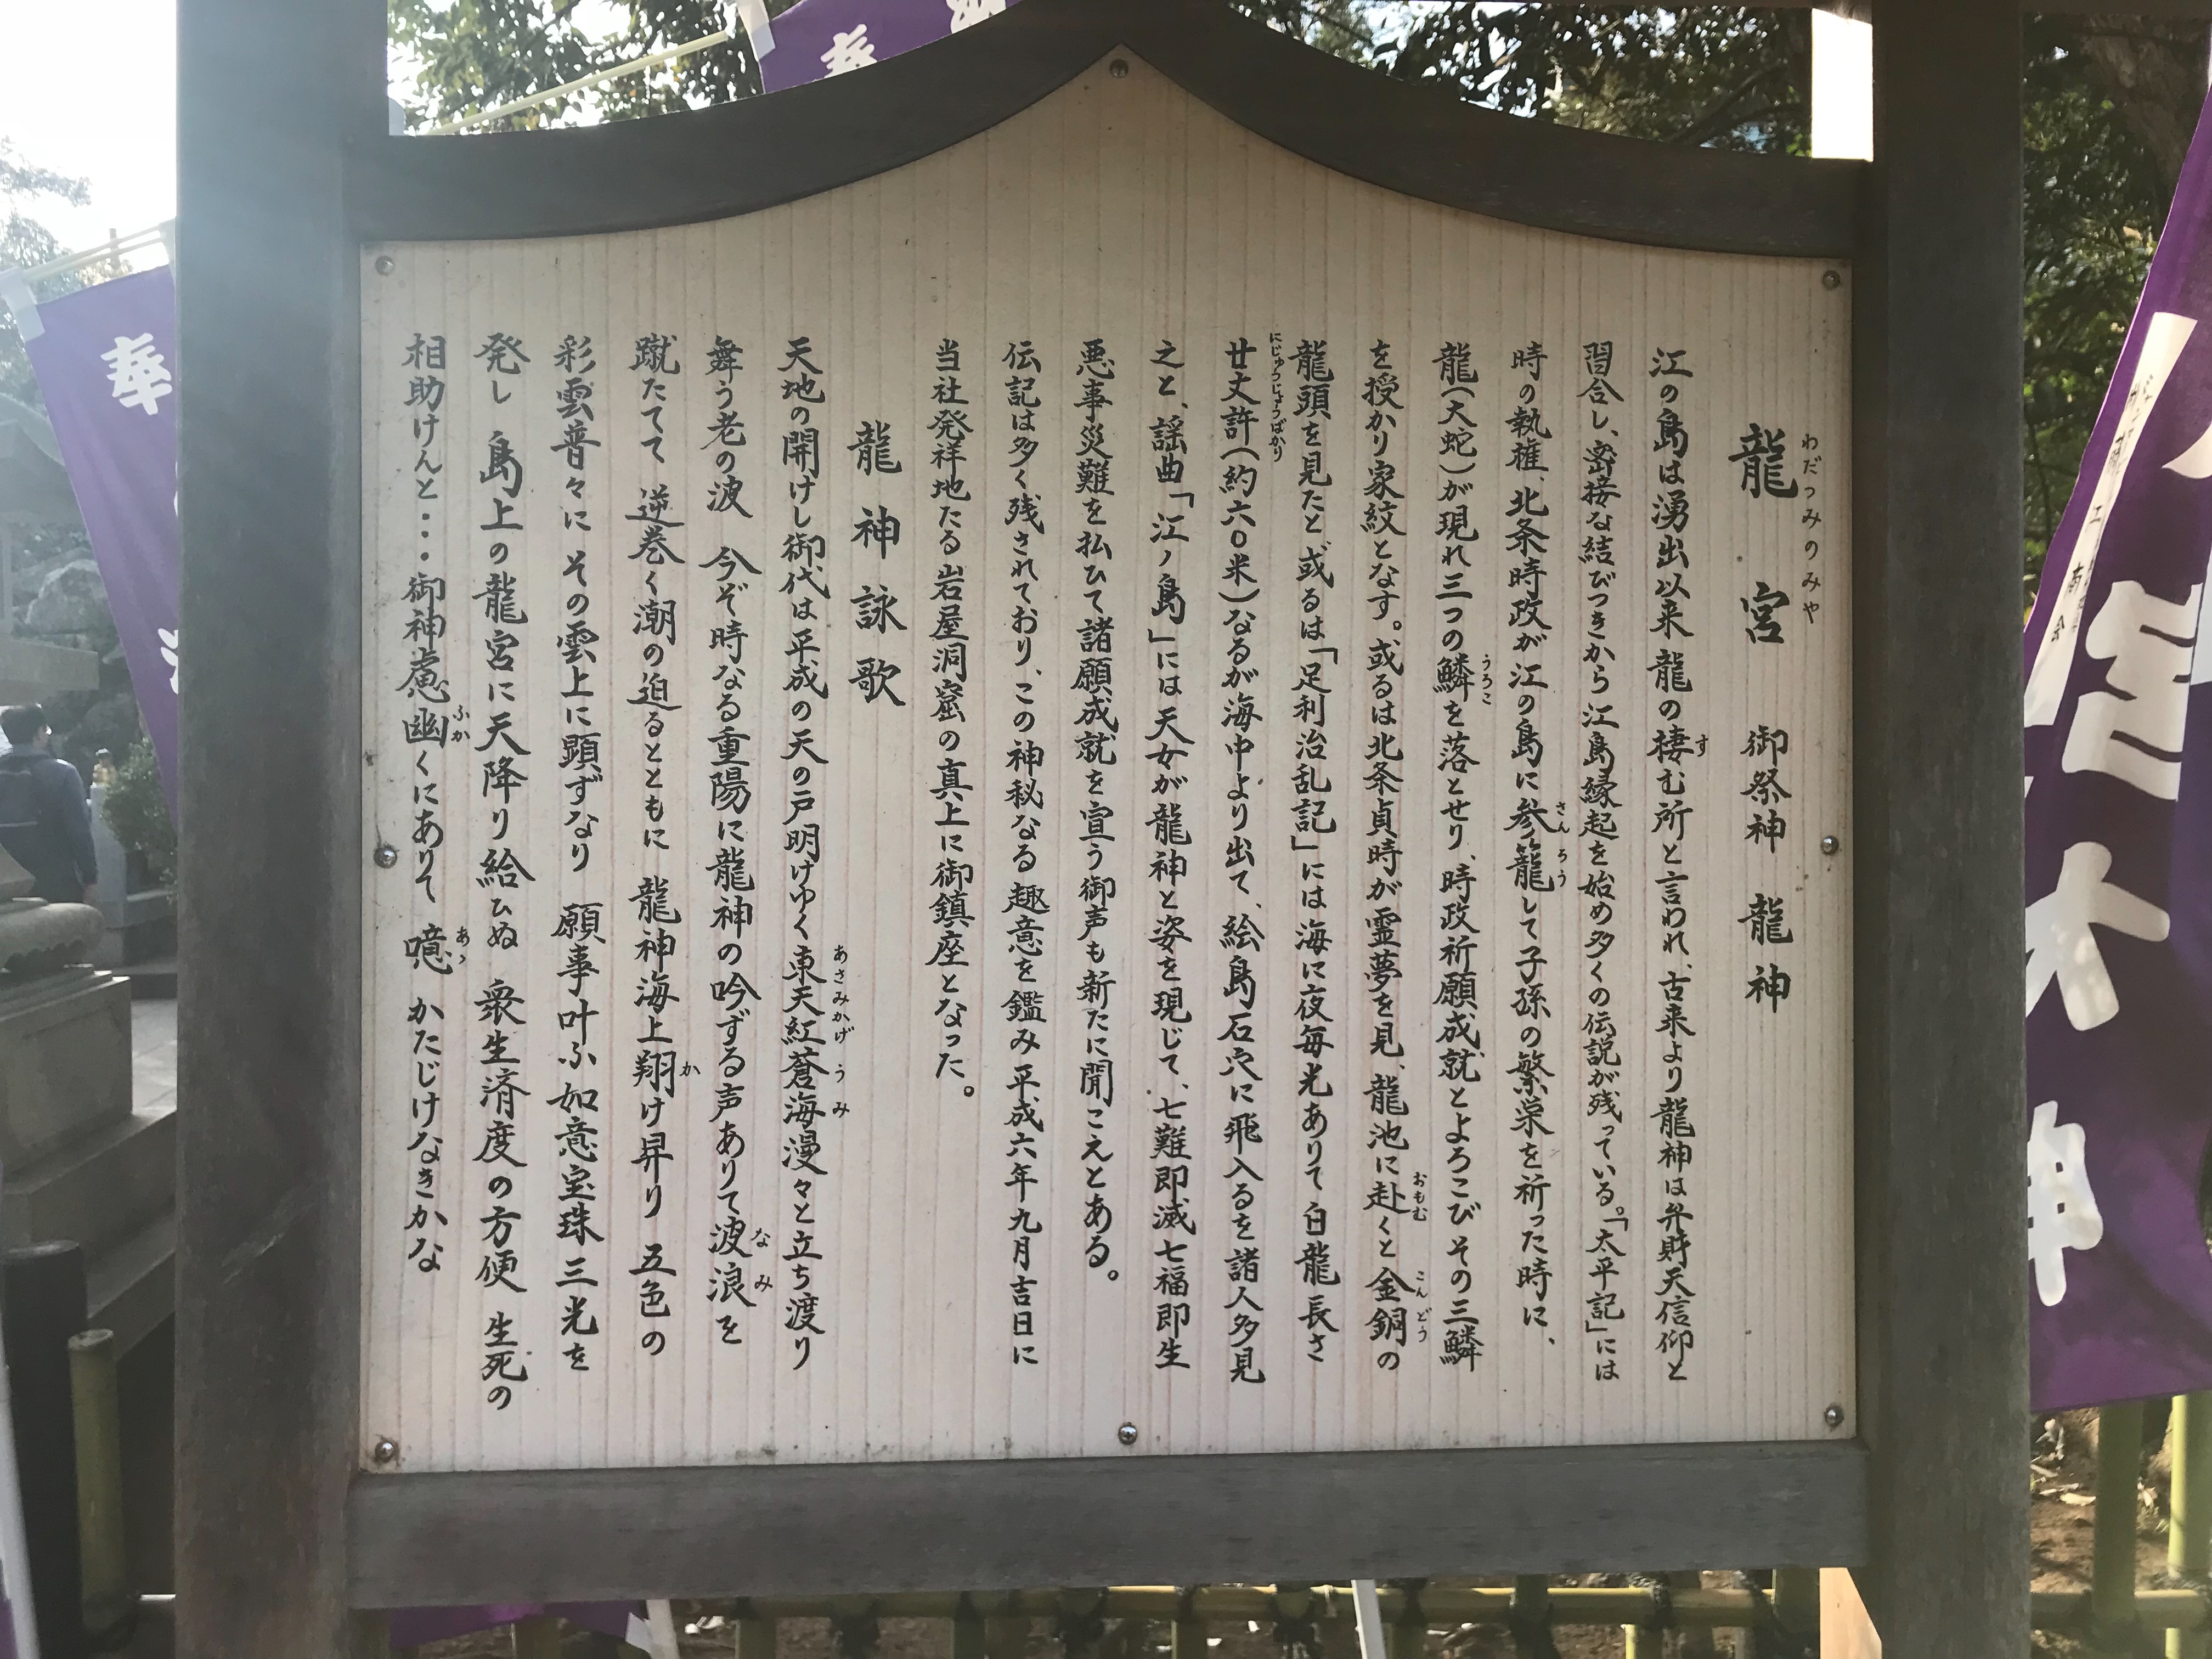 龍宮 御祭神 龍神
わだつみのみや
江の島は湧出以来龍の棲む所と言われ、古来より龍神は弁財天信仰と
す
習合し、密接な結びつきから江島縁起を始め多くの伝説が残っている。「太平記」には
時の執権、北条時政が江の島に参籠して子孫の繁栄を祈った時に、
さんろう
龍(大蛇)が現れ三つの鱗を落とせり、時政祈願成就とよろこびその三鱗
うろこ
を授かり家紋となす。或るは北条貞時が霊夢を見、龍池に赴くと金銅の
おもむ
こんどう
龍頭を見たと、或るは「足利治乱記」には海に夜毎光ありて白龍長さ
廿丈許(約六〇米)なるが海中より出て、絵島石穴に飛入るを諸人多見
にじゅうじょうばかり
之と、謡曲「江ノ島」には天女が龍神と姿を現じて、七難即滅七福即生
悪事災難を払ひて諸願成就を宣う御声も新たに聞こえとある。
伝記は多く残されており、この神秘なる趣意を鑑み平成六年九月吉日に
当社発祥地たる岩屋洞窟の真上に御鎮座となった。
龍神詠歌
天地の開けし御代は平成の天の戸明けゆく東天紅蒼海漫々と立ち渡り
あさみかげ
うみ
舞う老の波 今ぞ時なる重陽に龍神の吟ずる声ありて波浪を
なみ
蹴たてて 逆巻く潮の迫るとともに 龍神海上翔け昇り 五色の
か
彩雲普々に その雲上に顕ずなり 願事叶ふ如意宝珠三光を
発し 島上の龍宮に天降り給ひぬ 衆生済度の方便 生死の
相助けんと・・・御神慮幽くにありて 噫 かたじけなきかな
ふか
あっ
奉
奉
奉
大
神